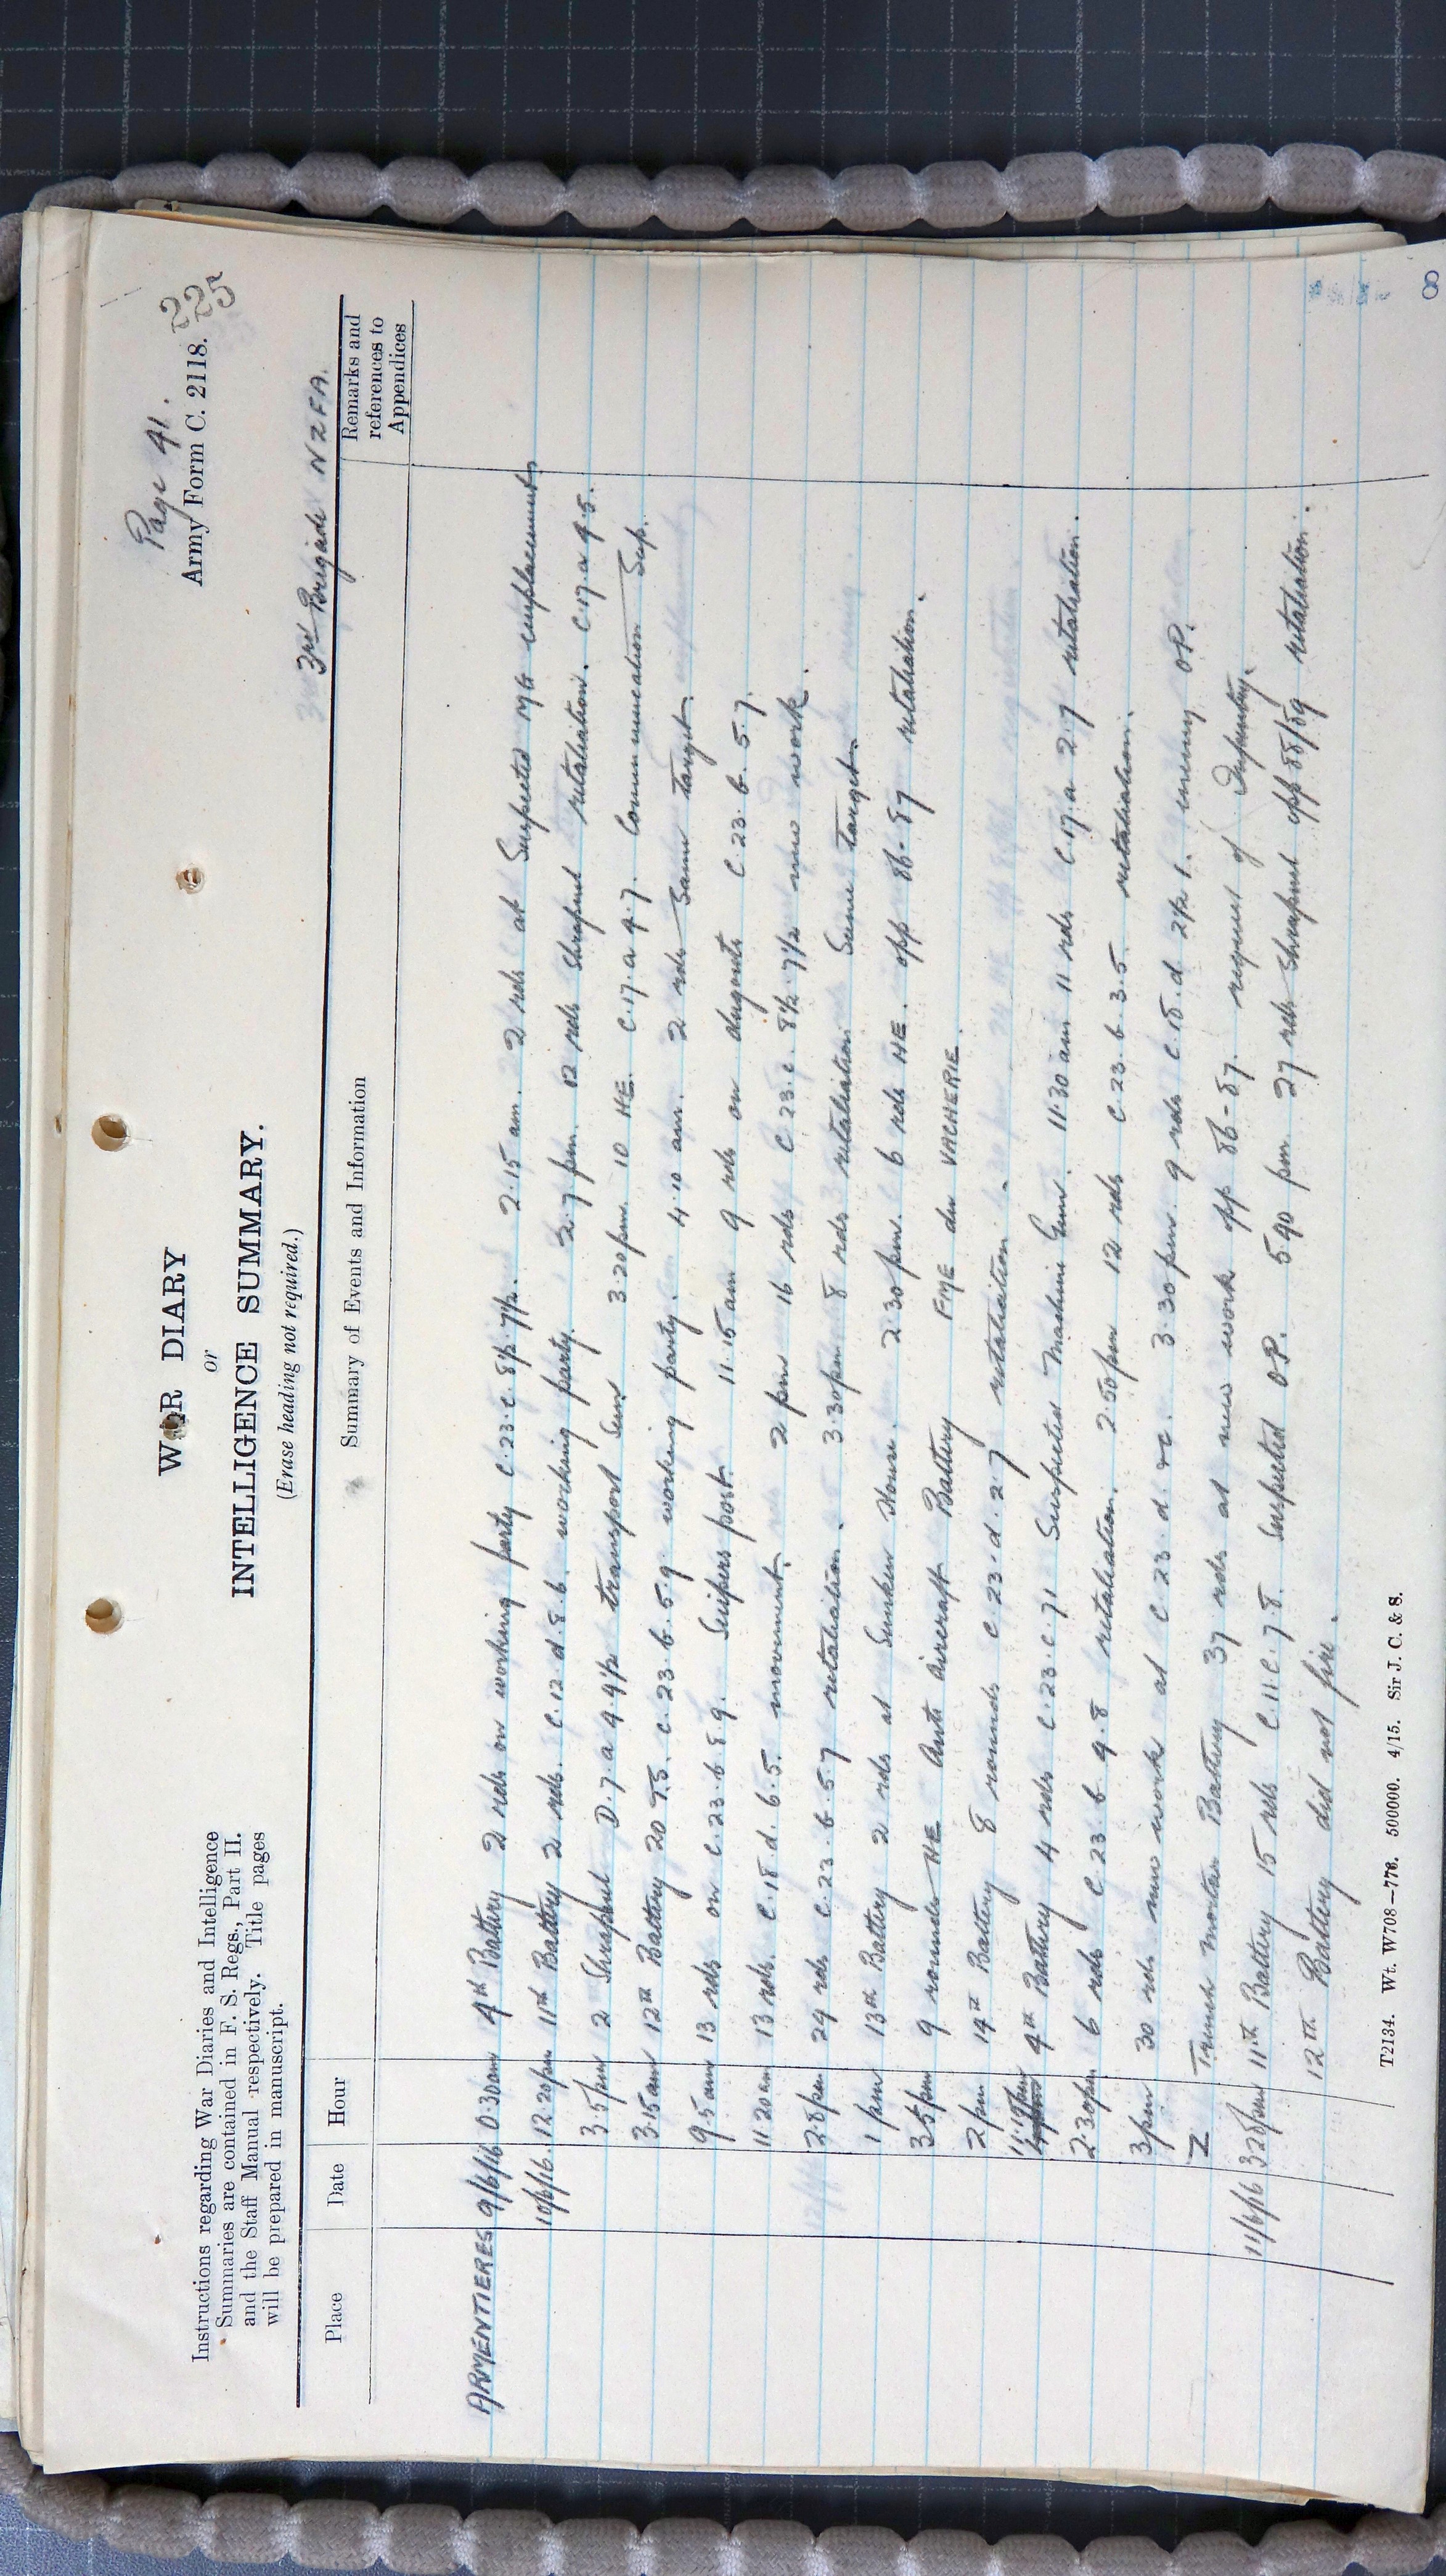 Page 41.
225
Army Form C. 2118.
WAR DIARY
or
INTELLIGENCE SUMMARY.
(Erase heading not required.)
Instructions regarding War Diaries and Intelligence
Summaries are contained in F. S. Regs., Part II.
and the Staff Manual respectively. Title pages
will be prepared in manuscript.
3rd Brigade NZFA.
Place Date Hour Summary of Events and Information Remarks and references to Appendices
ARMENTIERES 9/6/16 0.30am 4th Battery 2 rds on working party C.23.c.8½.7½. 2.15 am. 2 rds at Suspected MG emplacements
10/6/16. 12.20pm 11th Battery 2 rds. C.12.d.8.6. working party. 2.7 pm. 12 rds shrapnel retaliation. C.17.a 4.5.
3.5pm 2 Shrapnel D.7.a 9.9½ transport 3.20pm. 10 HE. C.17.a 4.7. Communication Sap.
3.15am 12th Battery 20 T.S. C.23.b.5.9. working party. 4.10 am. 2 rds Same target.
9.5am 13 rds on C.23.b 8.9. Snipers post. 11.15am 9 rds on dugouts C.23.b.5.7.
11.20am 13 rds. C.18.d.6.5. movement. 2 pm 16 rds C.23.c.8½.7½ new work.
2.8pm 29 rds C.23.b.5.7 retaliation. 3.30pm 8 rds retaliation Same target.
1 pm 13th Battery 2 rds at Sunken House. 2.30 pm. 6 rds HE. opp 86-87 retaliation.
3.5pm 9 rounds HE Anti Aircraft Battery FME du VACHERIE.
2 pm 14th Battery 8 rounds C.23.d.2.7 retaliation.
4th Battery 4 rds C.23.c.71 Suspected Machine Gun. 11.30 am 11 rds C.17.a 2.7 retaliation.
2.30pm 6 rds C.23.b 9.8 retaliation. 2.50pm 12 rds C.23.b.3.5. retaliation.
3pm 30 rds new work at C.23.d. 3.30 pm. 9 rds C.18.d 2½ 1. enemy OP.
Z Trench mortar Battery 37 rds at new work opp 86-87. request of Infantry.
11/6/16 3.28pm 11th Battery 15 rds C.11.c.7.8. Suspected OP. 5.40 pm 27 rds Shrapnel opp 88/89 retaliation.
12th Battery did not fire.
T2134. Wt. W708—776. 500000. 4/15. Sir J. C. & S.
8